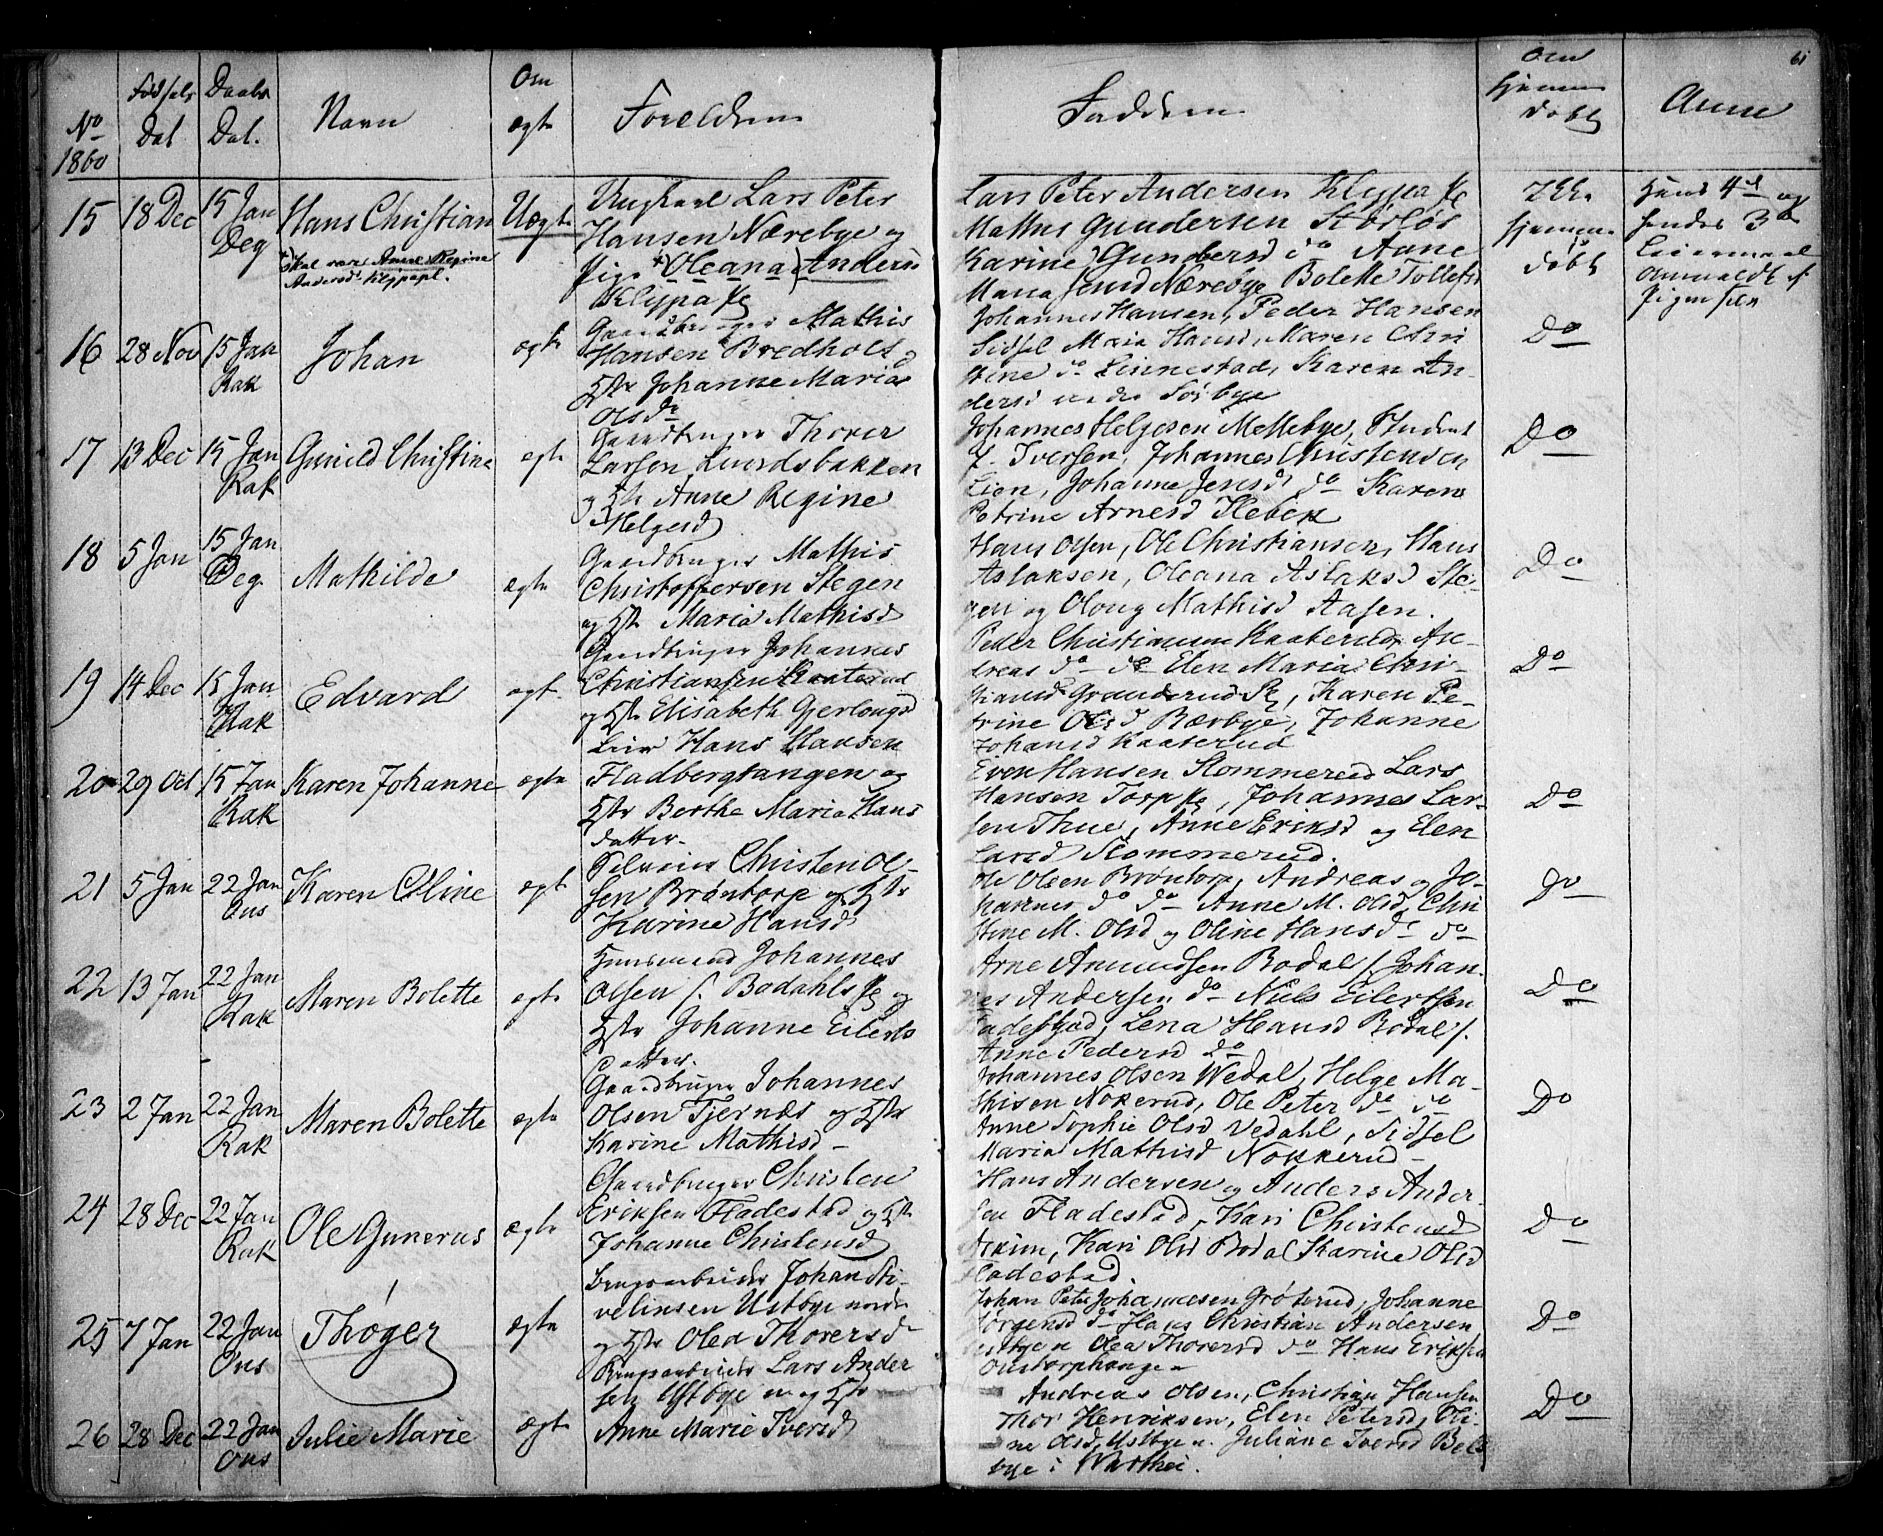 61
No
1860
Fødsels
Dat
Daabs
Dat.
Navn
Om
ægte
Foreldren
Faddren
Om
hjemme
døbt
Anm
15
18 Dec
15 Jan
Deg
Hans Christian
+ Skal være Anne Regine
Andersd. Klyppepl.
Uægte
Ungkarl Lars Peter
Hansen Nærebye og
Pige + Oleana Anders
Klyppa pl
Lars Peter Andersen Klyppa pl
Mathis Gundersen Storløs
Karine Gundersd do Anne
Maria Nærebye Bolette Tollefsd
Ikke
hjemme
døbt
Hans 4de og
hendes 3die
Leiermaal
Anmeldt af
Pigen selv
16
28 Nov
15 Jan
Rak
Johan
ægte
Gaardbruger Mathis
Hansen Bredholt og
Hstr Johanne Maria
Olsdr
Johannes Hansen, Peder Hansen
Sidsel Maia Hansd, Maren Chri
stine do Linnestad, Karen An-
dersd nedre Sørbye
Do
17
13 Dec
15 Jan
Rak
Gunild Christine
ægte
Gaardbruger Thorer
Larsen Lundsbakken
og Hstr Anne Regine
Helgesd
Johannes Helgesen Mellebye, Student
Iversen, Johannes Christensen
Lien, Johanne Jensd do Karen
Petrine Arnesd Hebek
Do
18
5 Jan
15 Jan
Deg.
Mathilde
ægte
Gaardbruger Mathis
Christoffersen Stegen
og Hstr Maria Mathisd
Hans Olsen, Ole Christiansen, Hans
Aslaksen, Oleana Aslaksd Ste-
gen og Oloug Mathisd Aasen.
Do
19
14 Dec
15 Jan
Rak
Edvard
ægt.
Gaardbruger Johannes
Christiansen Kaaterud
og Hstr Elisabeth Gjerlougsd
Peder Christiansen Kaaterud, An-
dreas do do Elen Maria Chri-
stiansd Granderud pl, Karen Pe-
trine Olsd Bærbye, Johanne
Johansd Kaaterud
Do
20
29 Oct
15 Jan
Rak
Karen Johanne
ægte
Leier Hans Hansen
Fladbergtangen og
Hstr Berthe Maria Hans
datter.
Even Hansen Kommerud Lars
Hansen Torp pl, Johannes Lar-
sen Thue, Anne Eriksd og Elen
Larsd Kommerud.
Do
21
5 Jan
22 Jan
Ons
Karen Oline
ægte
Selveier Christen Ol-
sen Brøntorp og Hstr
Karine Hansd
Ole Olsen Brøntorp, Andreas og Jo-
hannes do do Anne M. Olsd, Chri
stine M. Olsd og Oline Hansd do
Do
22
13 Jan
22 Jan
Rak
Maren Bolette
ægte
Huusmand Johannes
Olsen s. Bodahls pl og
Hstr Johanne Eilerts
datter.
Arne Amundsen Bodal s. Johan-
nes Andersen do Niels Eilertsen
Fladestad, Lena Hansd Bodal s.
Anne Pedersd do
Do
23
2 Jan
22 Jan
Rak
Maren Bolette
ægte
Gaardbruger Johannes
Olsen Tjernæs og Hstr
Karine Mathisd
Johannes Olsen Wedal, Helge Ma-
thisen Nokerud, Ole Peter do do
Anne Sophie Olsd Vedahl, Sidsel
Maria Mathisd Nokkerud
Do
24
28 Dec
22 Jan
Rak
Ole Gunerus
ægte
Gaardbruger Christen
Eriksen Fladestad og Hstr
Johanne Christensd
Hans Andersen og Anders Ander-
sen Fladestad, Kari Christensd
Askim, Kari Olsd Bodal Karine Olsd
Fladestad.
Do
25
7 Jan
22 Jan
Ons
Thøger
ægte
Brugsarbeider Johan Sti-
velinsen Ustbye nordr
og Hstr Olea Thorersd
Johan Peter Johannesen Grøterud, Johanne
Jørgensd do Hans Christian Andersen
Ustbye n Olea Thorersd do Hans Eriksen
Oustorphaugen
Do
26
28 Dec
22 Jan
Ons
Julie Marie
ægte
Brugsarbeider Lars Ander
sen Ustbye n og Hstr
Anne Marie Iversd
Andreas Olsen, Christian Hansen
Thor Henriksen, Elen Petersd, Oli-
ne Olsd, Ustbye n. Juliane Iversd Bels
bye i
Do